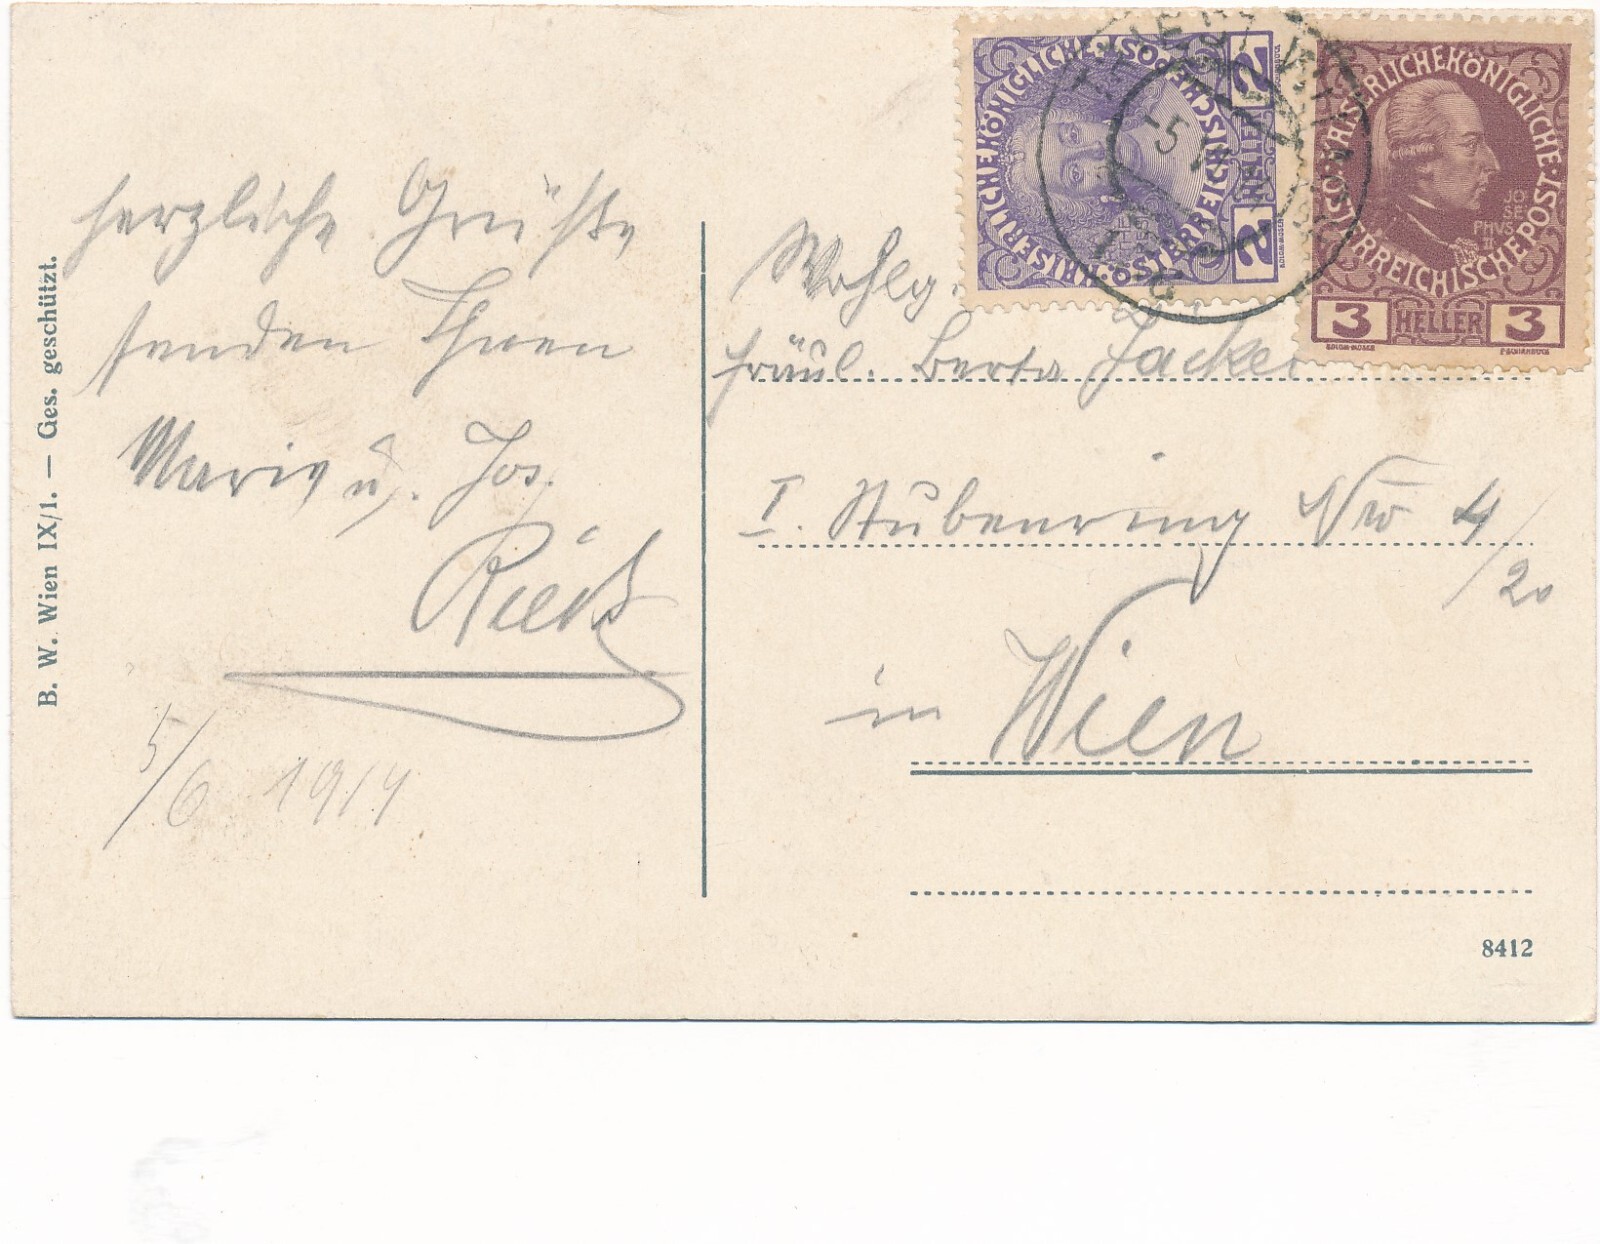 herzliche Grüße
senden Ihnen
Marie u. Jos.
5/6 1914
B. W. Wien IX/1. — Ges. geschützt.
Wohlg.
Fräul. Berta Jacker
I. Stubenring Nro 4/20
in Wien
8412
KAISERLICHE KÖNIGLICHE ÖSTERREICHISCHE POST
2 HELLER 2
KAISERLICHE KÖNIGLICHE ÖSTERREICHISCHE POST
JO
SE
PHVS
II
3 HELLER 3